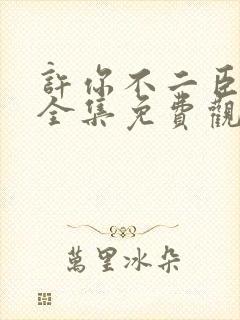 許你不二臣
全集免費觀
萬里冰朵